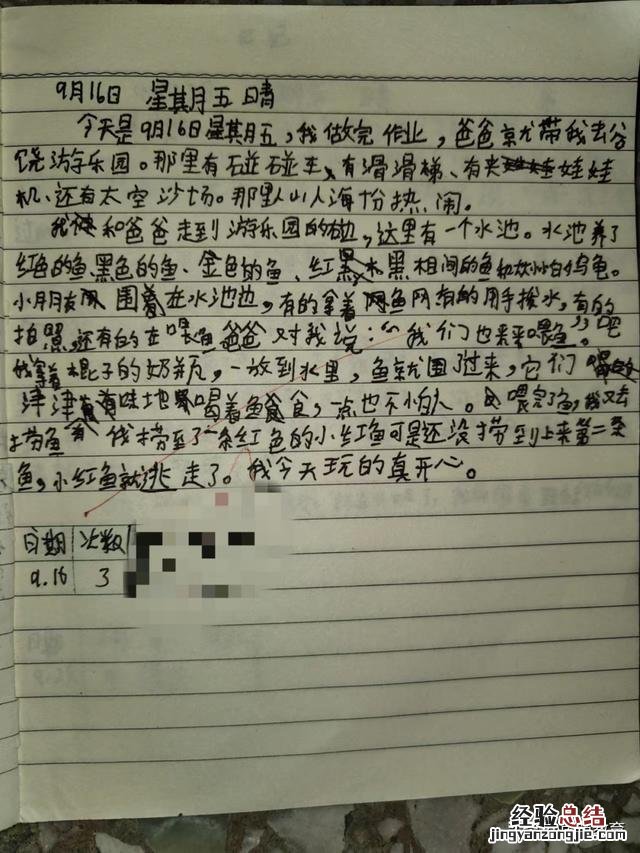 9月16日 星其月五 晴
今天是9月16日星其月五,我做完作业,爸爸就带我去谷
饶游乐园。那里有碰碰车、有滑滑梯、有夹娃娃
机、还有太空沙场。那里人山人海份热闹。
我和爸爸走到游乐园的右边,这里有一个水池。水池养了
红色的鱼、黑色的鱼、金色的鱼、红黑相间的鱼和
乌龟。
小朋友围着在水池边,有的拿着鱼网有的用手拨水,有的
拍照,还有的在喂鱼爸爸对我说:“我们也来喂鱼”吧
我拿着棍子的奶瓶,一放到水里,鱼就围了过来,它们
津津有味地喝着鱼食,一点也不怕人。喂完了鱼,我又去
捞鱼我捞到了一条红色的小红鱼可是还没捞到上来第二条
鱼,小红鱼就逃走了。我今天玩的真开心。
日期 次数
9.16 3
经验总结
jingyanzongjie.com